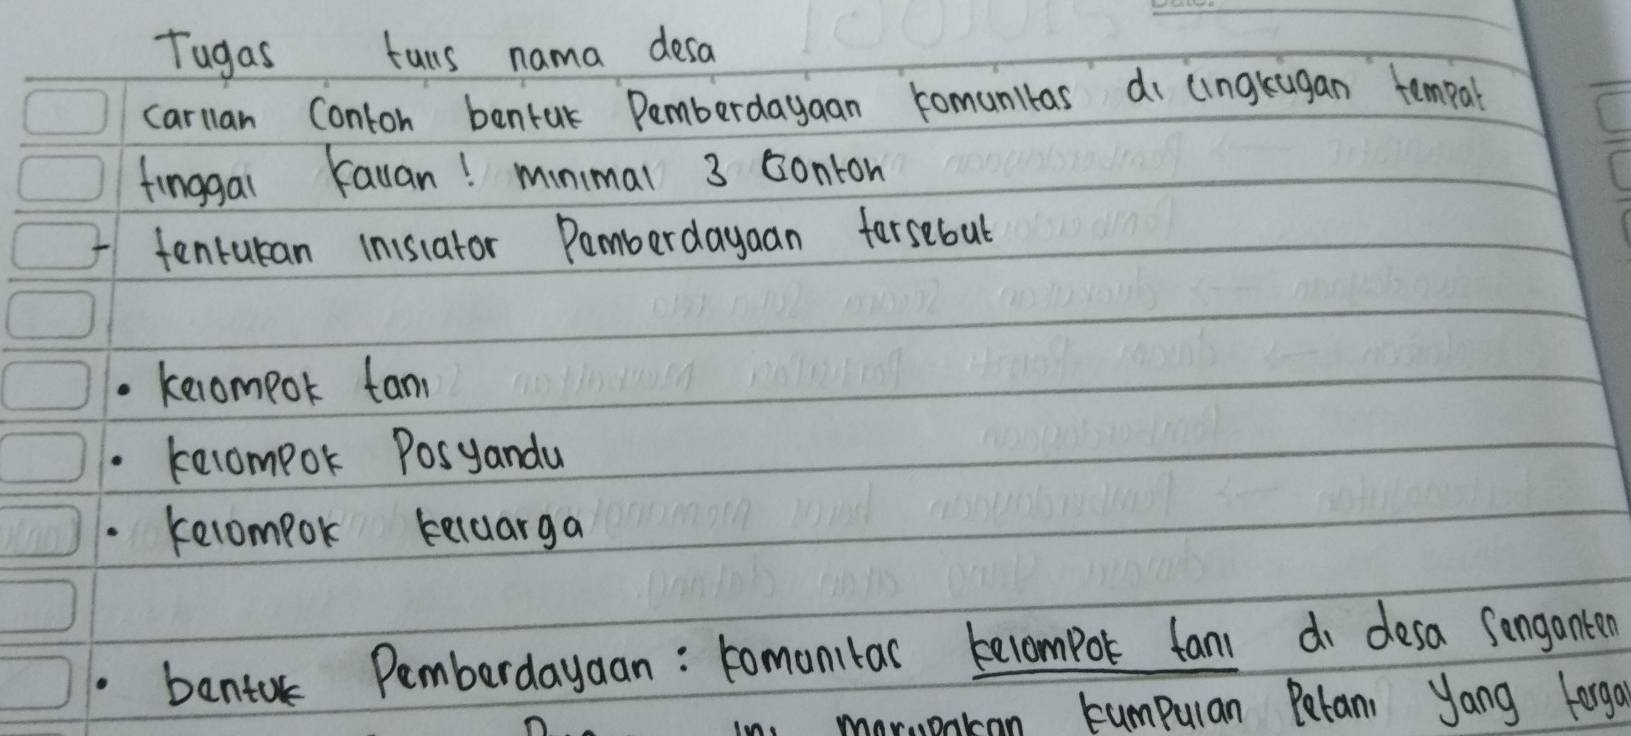 Tugas tulis nama desa
carilah Contoh bentuk Pemberdayaan komunitas di lingkugan tempat
tinggal kalian! minimal 3 Contoh
- tentukan inisiator Pemberdayaan tersebut
• kelompok tani
• kelompok Posyandu
• kelompok keluarga
• bentuk Pemberdayaan : komunitas kelompok tani di desa Senganten
ini merupakan kumpulan Petani yang